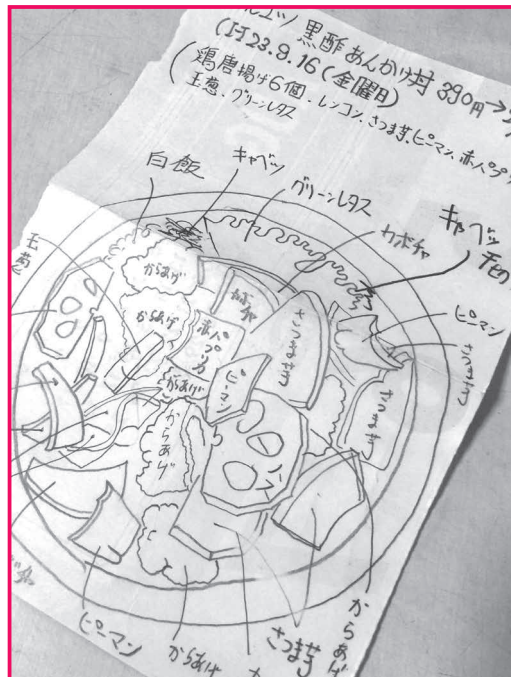 黒酢あんかけ丼 390円→
(H23.9.16(金曜日)
(鶏唐揚げ6個、レンコン、さつま芋、ピーマン、赤パプリ
玉葱、グリーンレタス
白飯
キャベツ
グリーンレタス
カボチャ
キャベツ
ピーマン
さつま芋
玉葱
からあげ
からあげ
カボチャ
赤パプリカ
さつま芋
ピーマン
からあげ
からあげ
さつま芋
ピーマン
からあげ
カ
さつま芋
からあげ